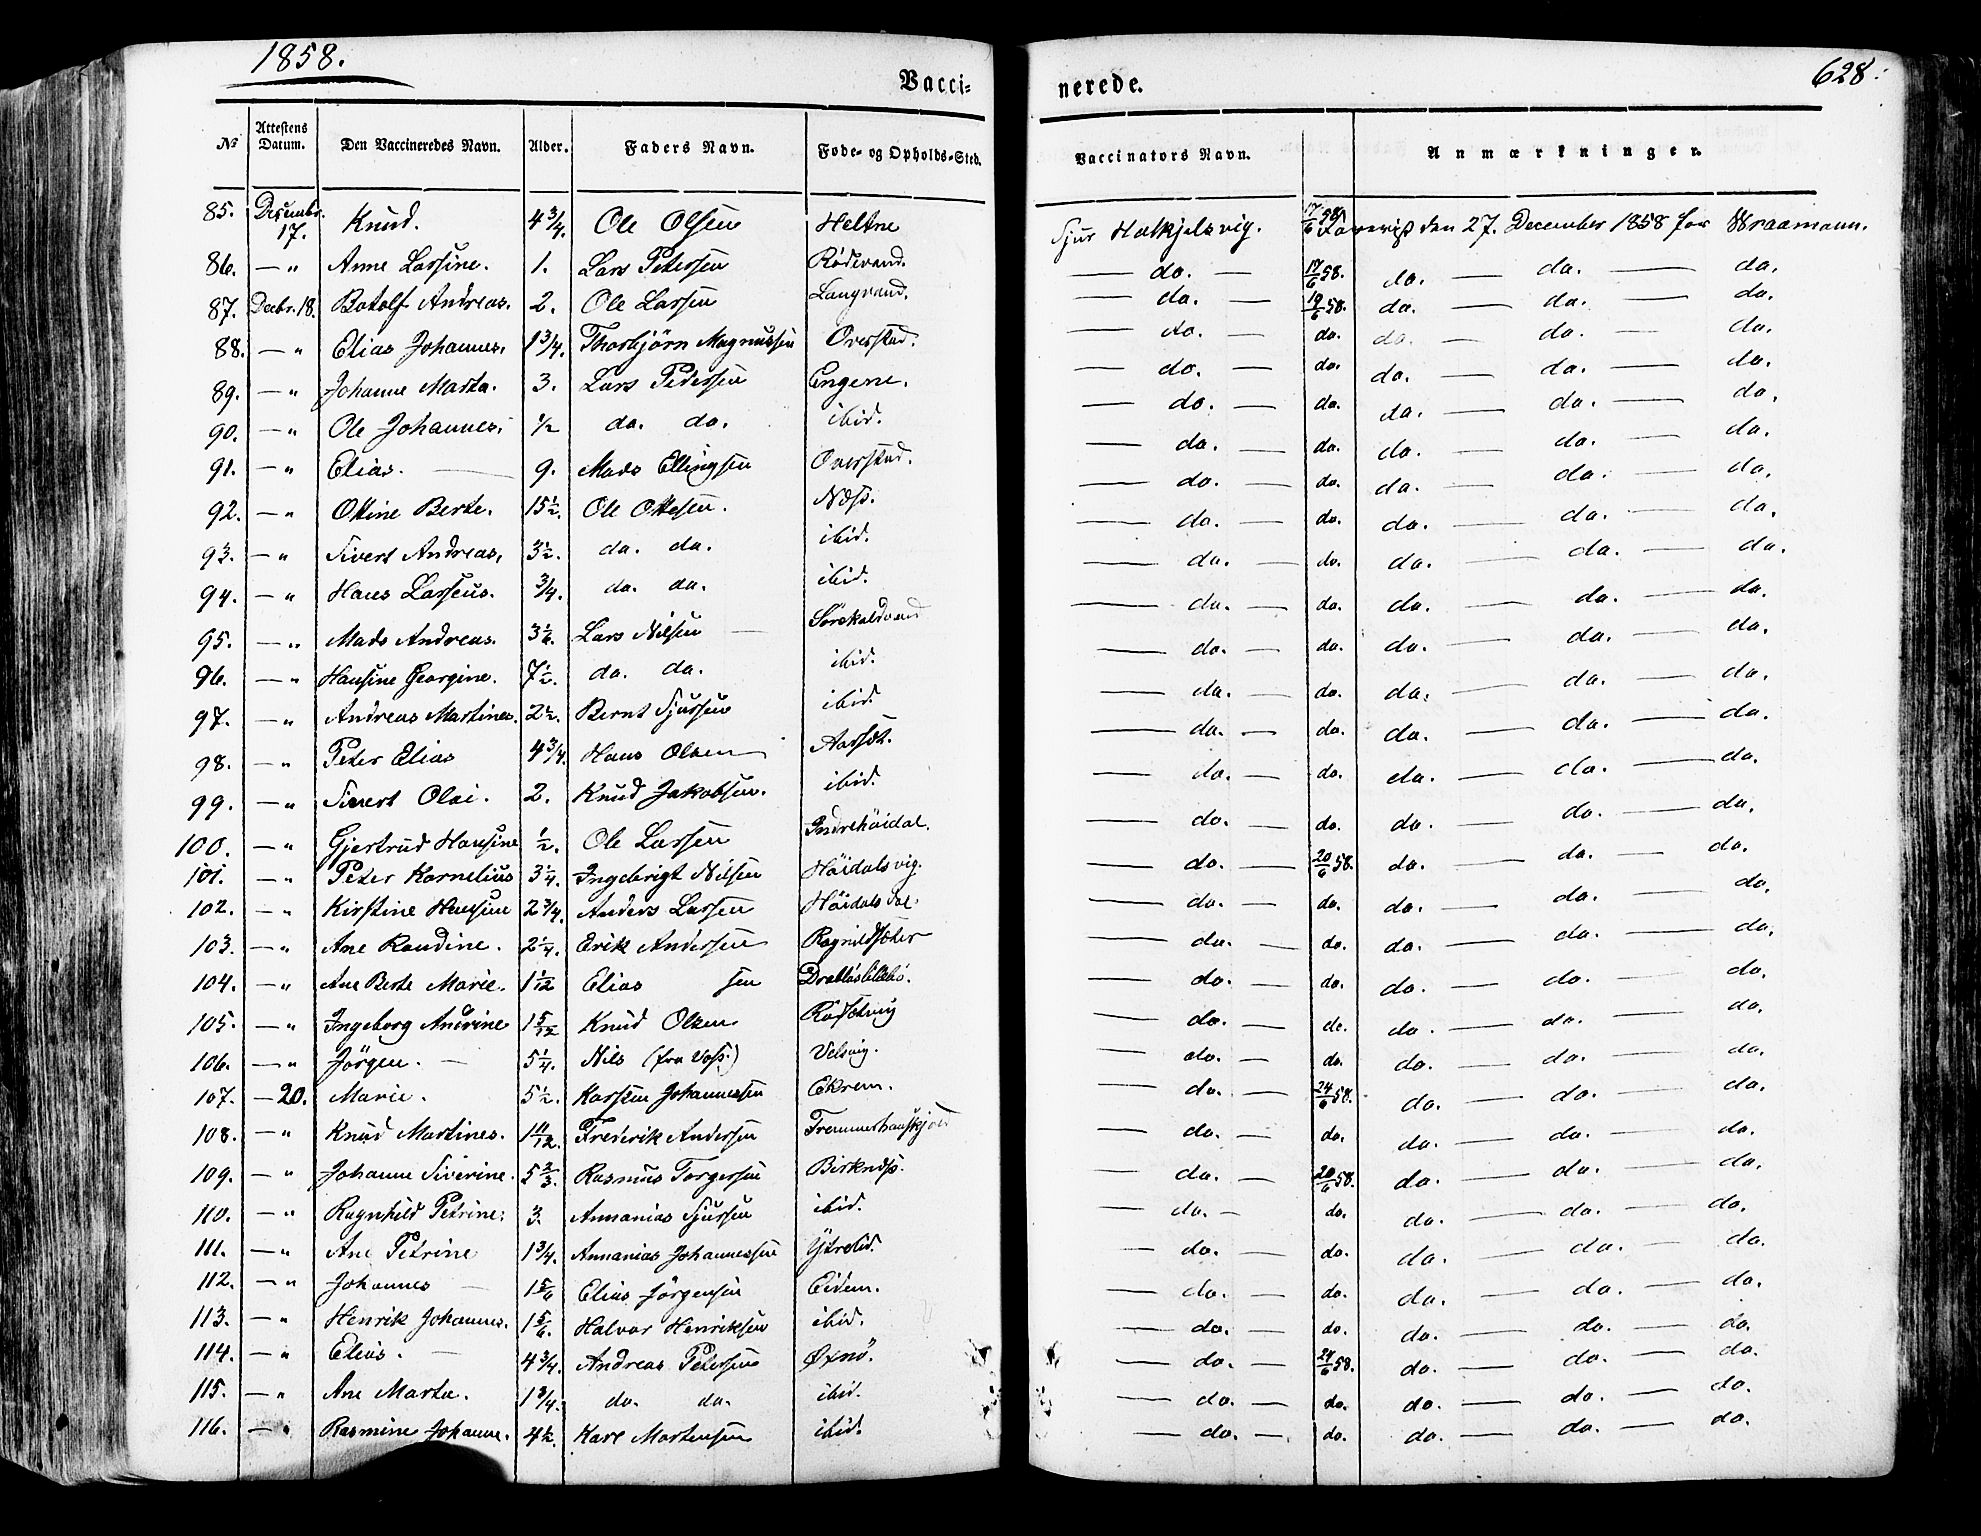 1858.
628.
Vacci-
nerede.
No Attestens Datum. Den Vaccineredes Navn. Alder. Faders Navn. Føde- og Opholds-Sted. Vaccinators Navn. Anmærkninger.
85. Decembr. 17. Knud. 4 3/4. Ole Olsen Heltne Sjur Holkjelsvig. 17/6 58. den 27. December 1858 for Wraamann.
86. — " Anne Lassine. 1. Lars Petersen Rödevand. — do. — 17/6 58. do. — do. — do.
87. Decbr. 18. Botolf Andreas. 2. Ole Larsen Langvand. — do. — 19/6 58. do. — do. — do.
88. — " Elias Johannes. 1 3/4. Thorbjörn Magnussen Overstad. — do. — do. do. — do. — do.
89. — " Johanne Marta. 3. Lars Pedersen Engene. — do. — do. do. — do. — do.
90. — " Ole Johannes. 1/2 do. do. ibid. — do. — do. do. — do. — do.
91. — " Elias. — 9. Mads Ellingsen Overstad. — do. — do. do. — do. — do.
92. — " Ottine Berte. 15 1/2. Ole Ottesen. Næss. — do. — do. do. — do. — do.
93. — " Sivert Andreas. 3 1/2. do. do. ibid. — do. — do. do. — do. — do.
94. — " Hans Lasseus. 3/4. do. do. ibid. — do. — do. do. — do. — do.
95. — " Mads Andreas. 3 1/6. Lars Nilsen — — do. — do. do. — do. — do.
96. — " Hansine Georgine. 7 1/2. do. do. ibid. — do. — do. do. — do. — do.
97. — " Andreas Martines. 2 1/2. Bernt Sjursen ibid. — do. — do. do. — do. — do.
98. — " Peter Elias 4 3/4. Hans Olsen Aarsæt. — do. — do. do. — do. — do.
99. — " Sivert Olai. 2. Knud Jakobsen. ibid. — do. — do. do. — do. — do.
100. — " Gjertrud Hansine 1/2. Ole Larsen Indrehöidal. — do. — do. do. — do. — do.
101. — " Peter Kornelius 3 1/4. Ingebrigt Nilsen Höidalsvig. — do. — 20/6 58. do. — do. — do.
102. — " Kirstine Hansine 2 3/4. Anders Larsen — do. — do. do. — do. — do.
103. — " Ane Randine. 2 1/4. Erik Andersen Ragnildsæter — do. — do. do. — do. — do.
104. — " Ane Berte Marie. 1 1/12 Elias sen — do. — do. do. — do. — do.
105. — " Ingeborg Andrine 1 5/12 Knud Olsen. — do. — do. do. — do. — do.
106. — " Jörgen. — 5 1/4. Nils (fra Voss.) Velsvig. — do. — do. do. — do. — do.
107. — 20. Marie. 5 1/2. Karsten Johannessen Ekrem. — do. — 24/6 58. do. — do. — do.
108. — " Knud Martines. 1 11/12. Frederik Andersen — do. — do. do. — do. — do.
109. — " Johanne Siverine. 5 2/3. Rasmus Torgersen Birknæs. — do. — 20/6 58. do. — do. — do.
110. — " Ragnhild Petrine. 3. Annanias Sjursen ibid. — do. — do. do. — do. — do.
111. — " Ane Petrine 1 3/4. Annanias Johannessen Ytrelid. — do. — do. do. — do. — do.
112. — " Johannes — 1 5/6 Elias Jörgensen Eidem. — do. — do. do. — do. — do.
113. — " Henrik Johannes. 1 5/6. Halvor Henriksen ibid. — do. — do. do. — do. — do.
114. — " Elias. — 4 3/4. Andreas Petersen Øxnö. — do. — 24/6 58. do. — do. — do.
115. — " Ane Marta. 1 3/4. do. do. ibid. — do. — do. do. — do. — do.
116. — " Rasmine Johanne. 4 1/2. Karl Mortensen ibid. — do. — do. do. — do. — do.